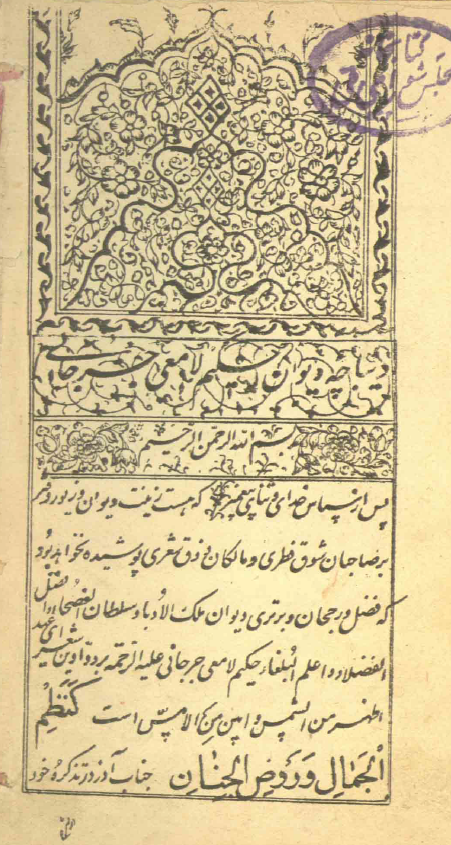 دیباچه دیوان حکیم لامعی جرجانی
بسم الله الرحمن الرحیم
پس از سپاس خدای و ثنای پیغمبر که هست زینت دیوان و زیور دفتر
بر صاحبان شوق فطری و مالکان ذوق شعری پوشیده نخواهد بود
که فضل و رجحان و برتری دیوان ملک الادبا و سلطان الفصحا افضل
الفضلاء و اعلم البلغاء حکیم لامعی جرجانی علیه الرحمه بر دواوین شعرای عهد
اظهر من الشمس و ابین من الامس است کَنَظْمِ
الجَمالِ وَ رَوْضِ الجِنان جناب آذر در تذکره خود